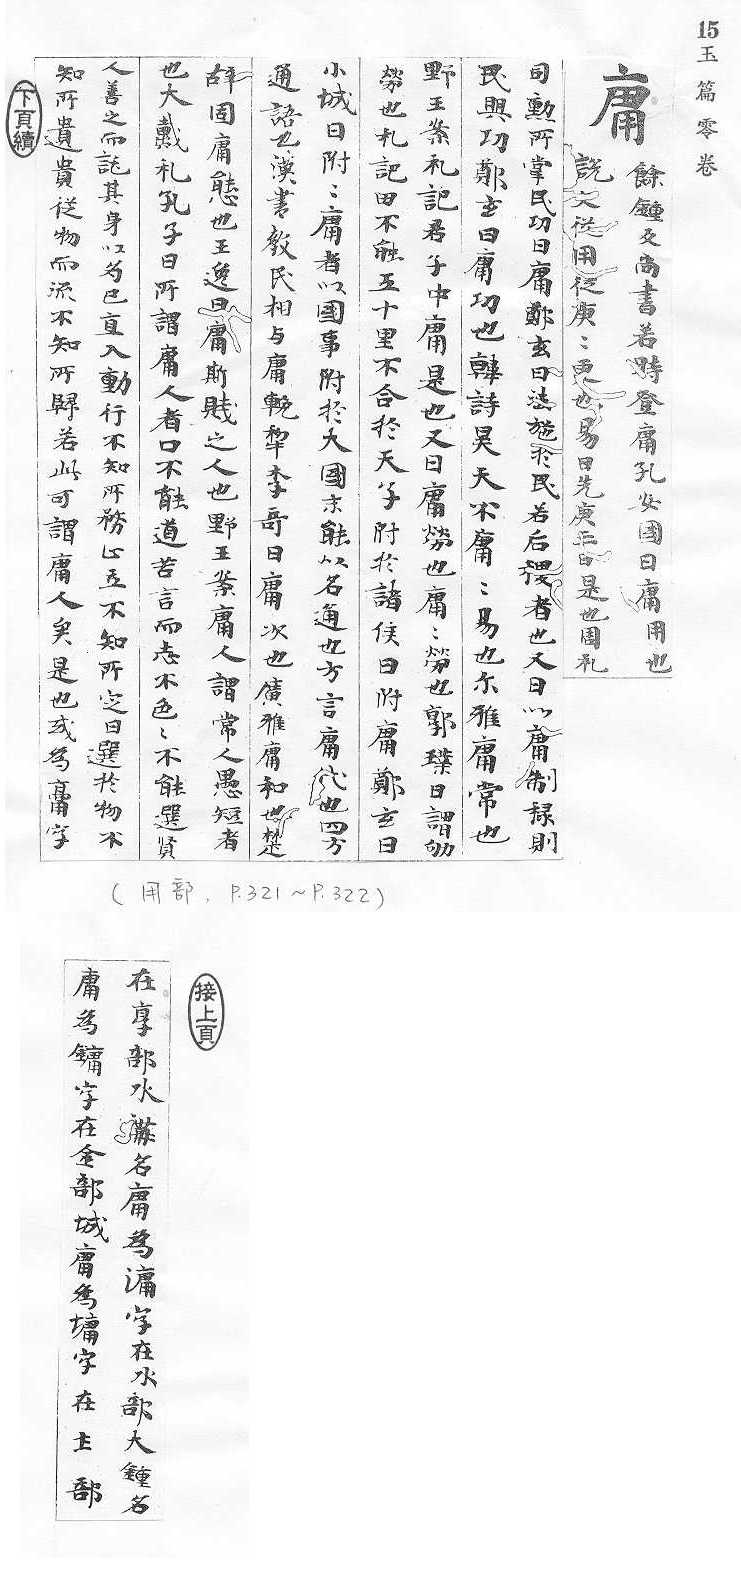 15 玉篇零卷
庸
餘鍾反尚書若時登庸孔安國曰庸用也
說文從用從庚〻更也易曰先庚三日是也周礼
司勳所掌民功曰庸鄭玄曰法施於民若后稷者也又曰以庸制祿則
民興功鄭玄曰庸功也韓詩昊天不庸〻易也尔雅庸常也
野王案礼記君子中庸是也又曰庸勞也庸〻勞也郭璞曰謂劬
勞也礼記曰不能五十里不合於天子附於諸侯曰附庸鄭玄曰
小城曰附〻庸者以國事附於大國未能以名通也方言庸代也四方
通語也漢書教民相与庸輓犂李哥曰庸次也廣雅庸和也楚
辞固庸態也王逸曰庸斯賤之人也野王案庸人謂常人愚短者
也大戴礼孔子曰所謂庸人者口不能道善言而志不色〻不能選賢
人善之而託其身以為己直入動行不知所務止立不知所定日選於物不
知所遺貴從物而流不知所歸若此可謂庸人矣是也或為𩫏字
下頁續
(用部,P.321~P.322)
接上頁
在𩫏部水名庸為滽字在水部大鍾名
庸為鏞字在金部城庸為墉字在土部